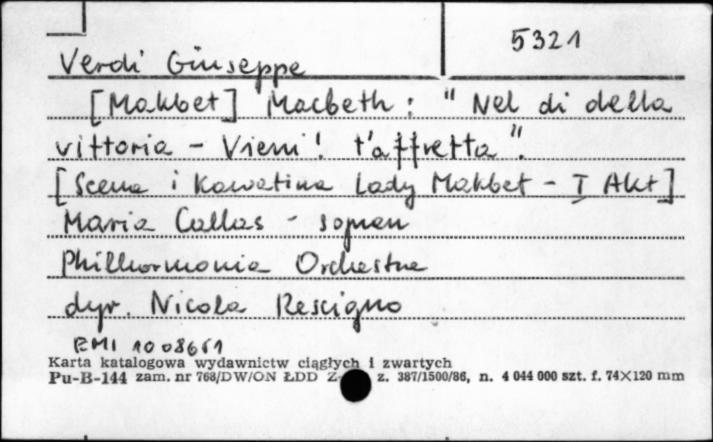 5321
Verdi Giuseppe
[Makbet] Macbeth : "Nel di della
vittoria - Vieni! t'affretta".
[Scena i kawatina Lady Makbet - I Akt]
Maria Callas - sopran
Philharmonia Orchestra
dyr. Nicola Rescigno
EMI 1008651
Karta katalogowa wydawnictw ciągłych i zwartych
Pu-B-144 zam. nr 768/DW/ON ŁDD z. 387/1500/86, n. 4 044 000 szt. f. 74×120 mm